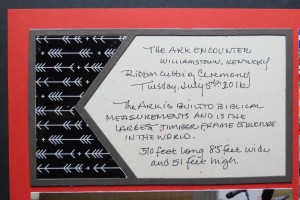 THE ARK ENCOUNTER
WILLIAMSTOWN, KENTUCKY
Ribbon Cutting Ceremony
Tuesday, July 5th 2016
THE ARK IS BUILT TO BIBLICAL
MEASUREMENTS AND IS THE
LARGEST TIMBER FRAME STRUCTURE
IN THE WORLD.
510 feet long 85 feet wide
and 51 feet high.